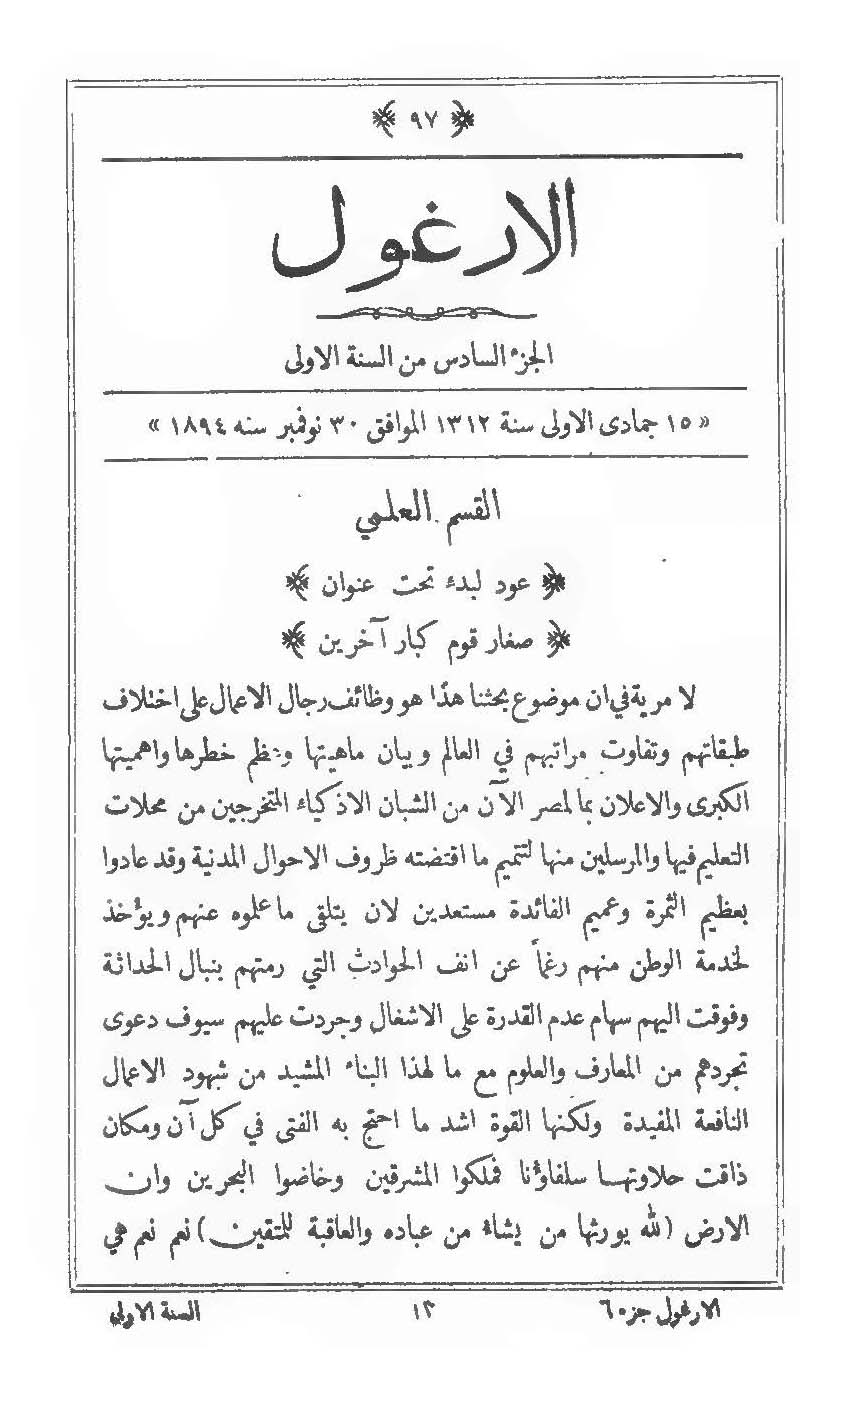 ٩٧
الارغول
الجزء السادس من السنة الاولى
« ١٥ جمادى الاولى سنة ١٣١٢ الموافق ٣٠ نوفمبر سنه ١٨٩٤ »
القسم العلمي
عود لبدء تحت عنوان
صغار قوم كبار آخرين
لا مرية في ان موضوع بحثنا هذا هو وظائف رجال الاعمال على اختلاف
طبقاتهم وتفاوت مراتبهم في العالم وبيان ماهيتها وعظم خطرها واهميتها
الكبرى والاعلان بما لمصر الآن من الشبان الاذكياء المتخرجين من محلات
التعليم فيها والمرسلين منها لتتميم ما اقتضته ظروف الاحوال المدنية وقد عادوا
بعظيم الثمرة وعميم الفائدة مستعدين لان يتلقى ما علموه عنهم ويؤخذ
لخدمة الوطن منهم رغماً عن انف الحوادث التي رمتهم بنبال الحداثة
وفوقت اليهم سهام عدم القدرة على الاشغال وجردت عليهم سيوف دعوى
تجردهم من المعارف والعلوم مع ما لهذا البناء المشيد من شهود الاعمال
النافعة المفيدة ولكنها القوة اشد ما احتج به الفتى في كل آن ومكان
ذاقت حلاوتها سلفاؤنا فملكوا المشرقين وخاضوا البحرين وان
الارض (لله يورثها من يشاء من عباده والعاقبة للمتقين) نعم نعم هي
الارغول جزء ٦
١٣
السنة الاولى